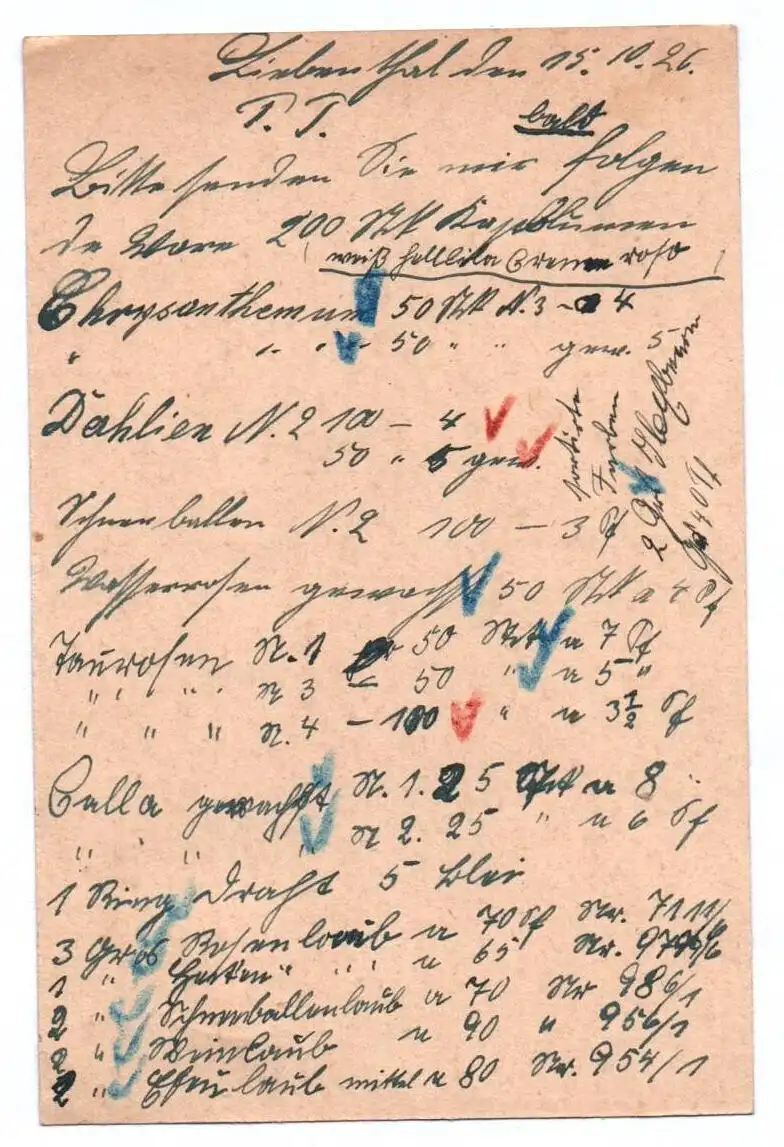 Liebenthal den 15.10.26.
P. T. bald
Bitte senden Sie mir folgen
de Ware 200 Stk Kapblumen
weiß helllila Creme rosa
Chrysanthemum 50 Stk N.3 - 4
" " " 50 " " gew. 5
Dahlien N.2 100 - 4
50 " 5 gew.
sortirte
Farben
2 Gr
Schneeballen N.2 100 - 3 Pf
Wasserrosen gewachst 50 Stk a 4 Pf
Taurosen N.1 50 Stk a 7 Pf
" " " N 3 - 50 " a 5 "
" " " N.4 - 100 " a 3 1/2 Pf
Calla gewachst N.1. 25 Stk a 8 "
" " " N 2. 25 " a 6 Pf
1 Ring Draht 5 Blei
3 Gros Rosenlaub a 70 Pf Nr. 7111/
1 " " " a 65 Nr.
2 " Schneeballenlaub a 70 Nr 986/1
2 " Weinlaub a 90 " 956/1
2 " Efeulaub mittel a 80 Nr. 954/1